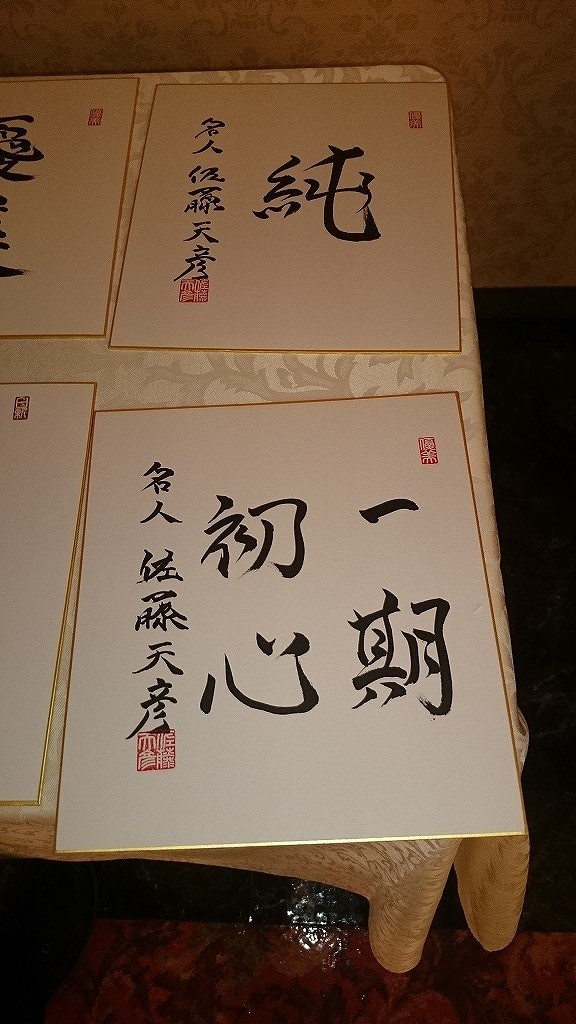 純
名人 佐藤天彦
一期
初心
名人 佐藤天彦